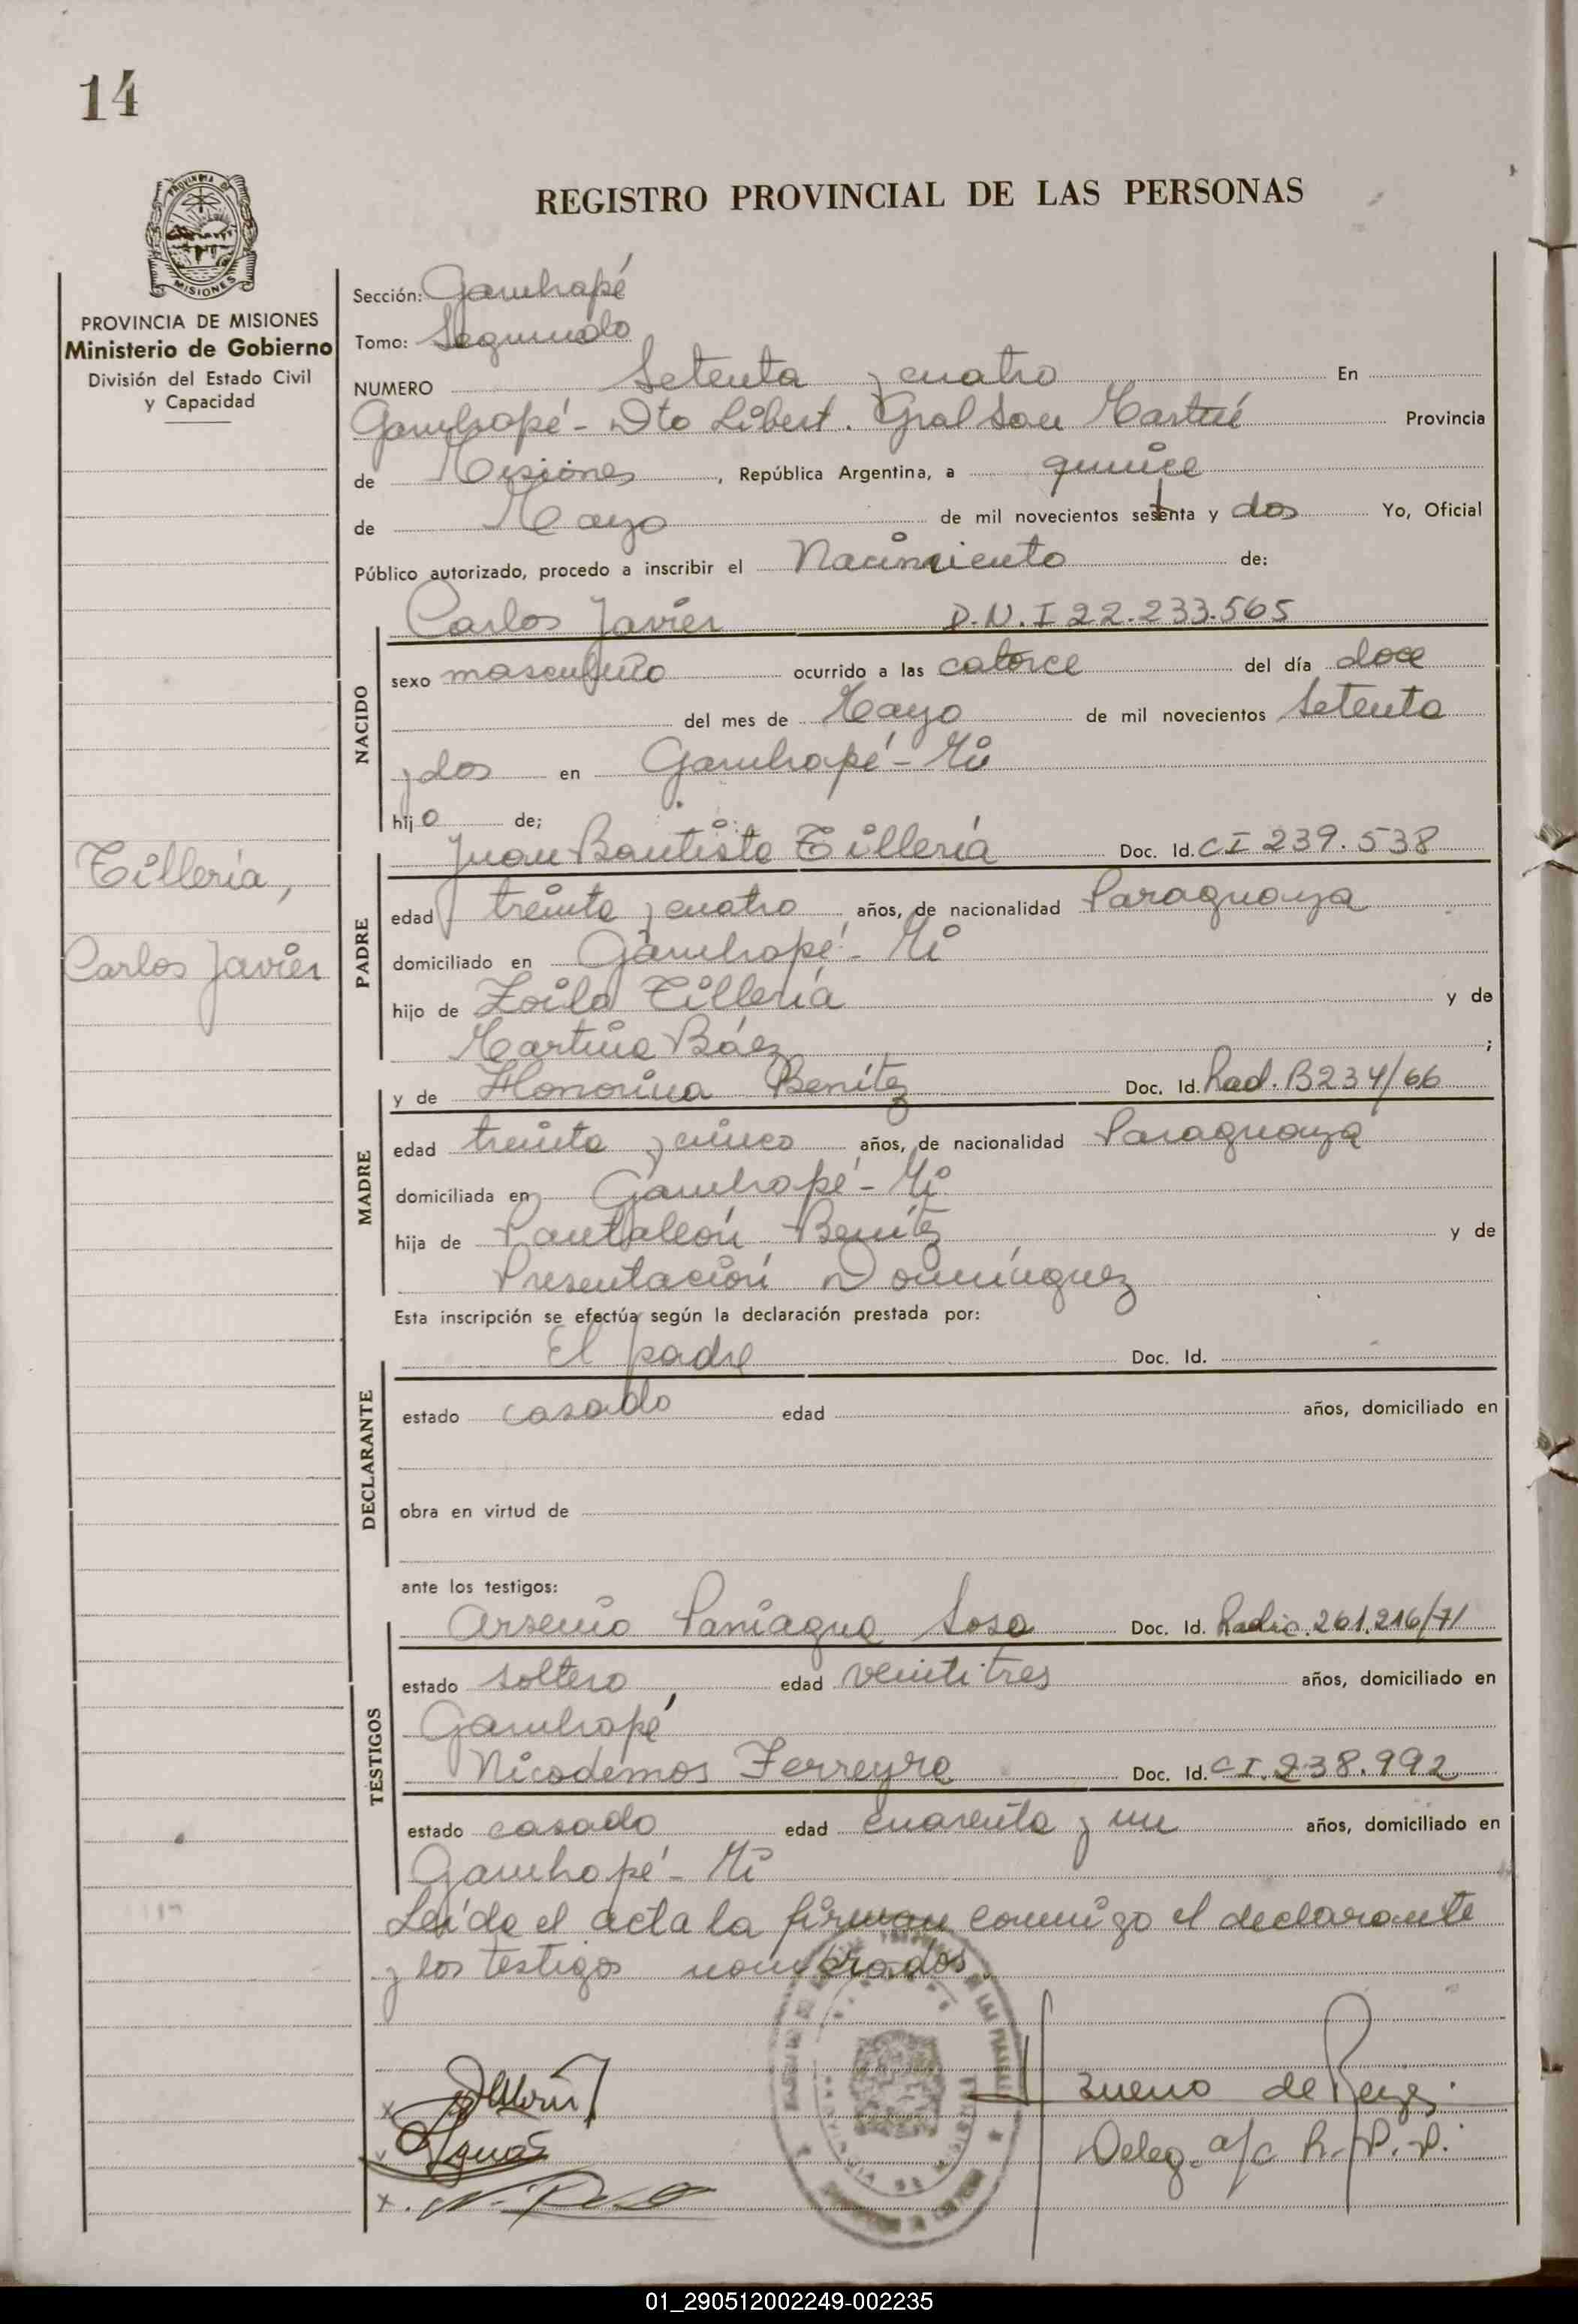 14
PROVINCIA DE
MISIONES
PROVINCIA DE MISIONES
Ministerio de Gobierno
División del Estado Civil
y Capacidad
Tillería,
Carlos Javier
REGISTRO PROVINCIAL DE LAS PERSONAS
Sección: Garuhapé
Tomo: Segundo
NUMERO Setenta y cuatro En
Garuhapé - Dto Libert. Gral San Martín Provincia
de Misiones, República Argentina, a quince
de Mayo de mil novecientos setenta y dos Yo, Oficial
Público autorizado, procedo a inscribir el Nacimiento de:
Carlos Javier D.N.I 22.233.565
NACIDO
sexo masculino ocurrido a las catorce del día doce
del mes de Mayo de mil novecientos Setenta
y dos en Garuhapé - Mi
hijo de;
Juan Bautista Tillería Doc. Id. CI 239.538
PADRE
edad treinta y cuatro años, de nacionalidad Paraguaya
domiciliado en Garuhapé - Mi
hijo de Zoilo Tillería y de
Martina Báez ;
y de Honorina Benítez Doc. Id. Rad. B234/66
MADRE
edad treinta y cinco años, de nacionalidad Paraguaya
domiciliada en Garuhapé - Mi
hija de Pantaleón Benítez y de
Presentación Domínguez
Esta inscripción se efectúa según la declaración prestada por:
El padre Doc. Id.
DECLARANTE
estado casado edad años, domiciliado en
obra en virtud de
ante los testigos:
Arsenio Paniagua Sosa Doc. Id. Radic. 261.216/71
TESTIGOS
estado soltero edad veintitres años, domiciliado en
Garuhapé
Nicodemos Ferreyra Doc. Id. CI. 238.992
estado casado edad cuarenta y un años, domiciliado en
Garuhapé - Mi
Leída el acta la firman conmigo el declarante
y los testigos nombrados.
H Bueno de Reyes.
Deleg. a/c R.P.P.
01_290512002249-002235